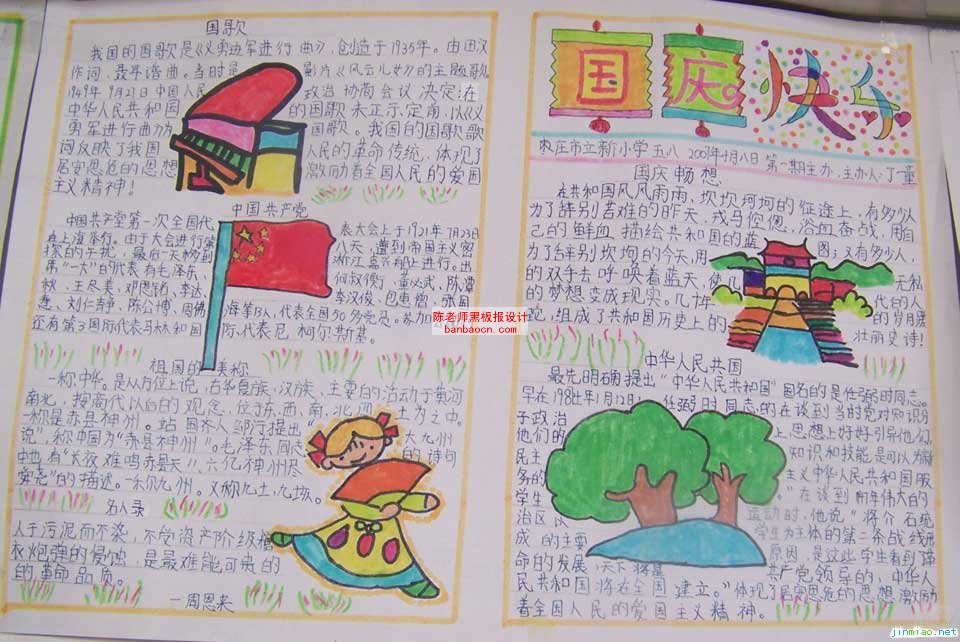 国歌
我国的国歌是《义勇进军进行曲》，创造于1935年。由田汉
作词，聂耳谱曲。当时是影片《风云儿女》的主题歌
1949年9月21日中国人民政治协商会议决定：在
中华人民共和国的国歌未正示定前，以《义
勇军进行曲为国歌。我国的国歌歌
词反映了我国人民的革命传统，体现了
居安思危的思想激励着全国人民的爱国
主义精神！
中国共产党
中国共产党第一次全国代表大会上于1921年7月23日
在上海举行。由于大会进行
的干扰，最后一天移到浙江嘉兴船上进行。出
席“一大”的代表有毛泽东、何叔衡、董必武、陈潭
秋、王尽美、邓恩铭、李达、李汉俊、包惠僧、张国
焘、刘仁静、陈公博、周佛海等13人，代表全国50多党员。参加
还有第3国际代表马林和国际代表尼柯尔斯基。
祖国的美称
一称中华。是从方位上说，古华夏族、汉族，主要的活动于黄河
南北，按商代以白的观念，位于东、西、南、北
一称是赤县神州。
说”，称中国为“赤县神州”。毛泽东同
大九州
的诗句
中也有“长夜难鸣赤县天”、“六亿神州尽
舜尧”的描述。一尔九州。又称九土、九场。
名人录
人于污泥而不染，不受资产阶级糖
衣炮弹的侵蚀，是最难能可贵的
的革命品质。
一周恩来
国庆快乐
枣庄市立新小学五八 第一期主办，主办人：丁童
国庆畅想
在共和国风风雨雨，坎坎坷坷的征途上，有多少人
为了辞别苦难的昨天，戎马倥偬，浴血奋战，用自
己的鲜血，描绘共和国的蓝图；又有多少人，
为了辞别坎坷的今天，用
无私
的双手去呼唤着蓝天，
代的人
的梦想变成现实。几十
的岁月蹉
跎，组成了共和国历史上的
壮丽史诗！
中华人民共和国
最先明确提出“中华人民共和国”国名的是任弼时同志。
早在1948年1月12日，任弼时同志的在谈到当时党对知识分
子政治上，思想上好好引导他们，
他们的知识和技能是可以为新
民主主义中华人民共和国服
务的。”在谈到明年伟大的
学生运动时，他说“将介石统
治区以学生为主体的第二条战线形
成的主要原因，是这些学生看到了
命的发展，天下将是共产党领导的，中华人
民共和国将在全国建立。”体现了居安思危的思想激励
着全国人民的爱国主义精神。
陈老师黑板报设计
banbaocn.com
jinmiao.net